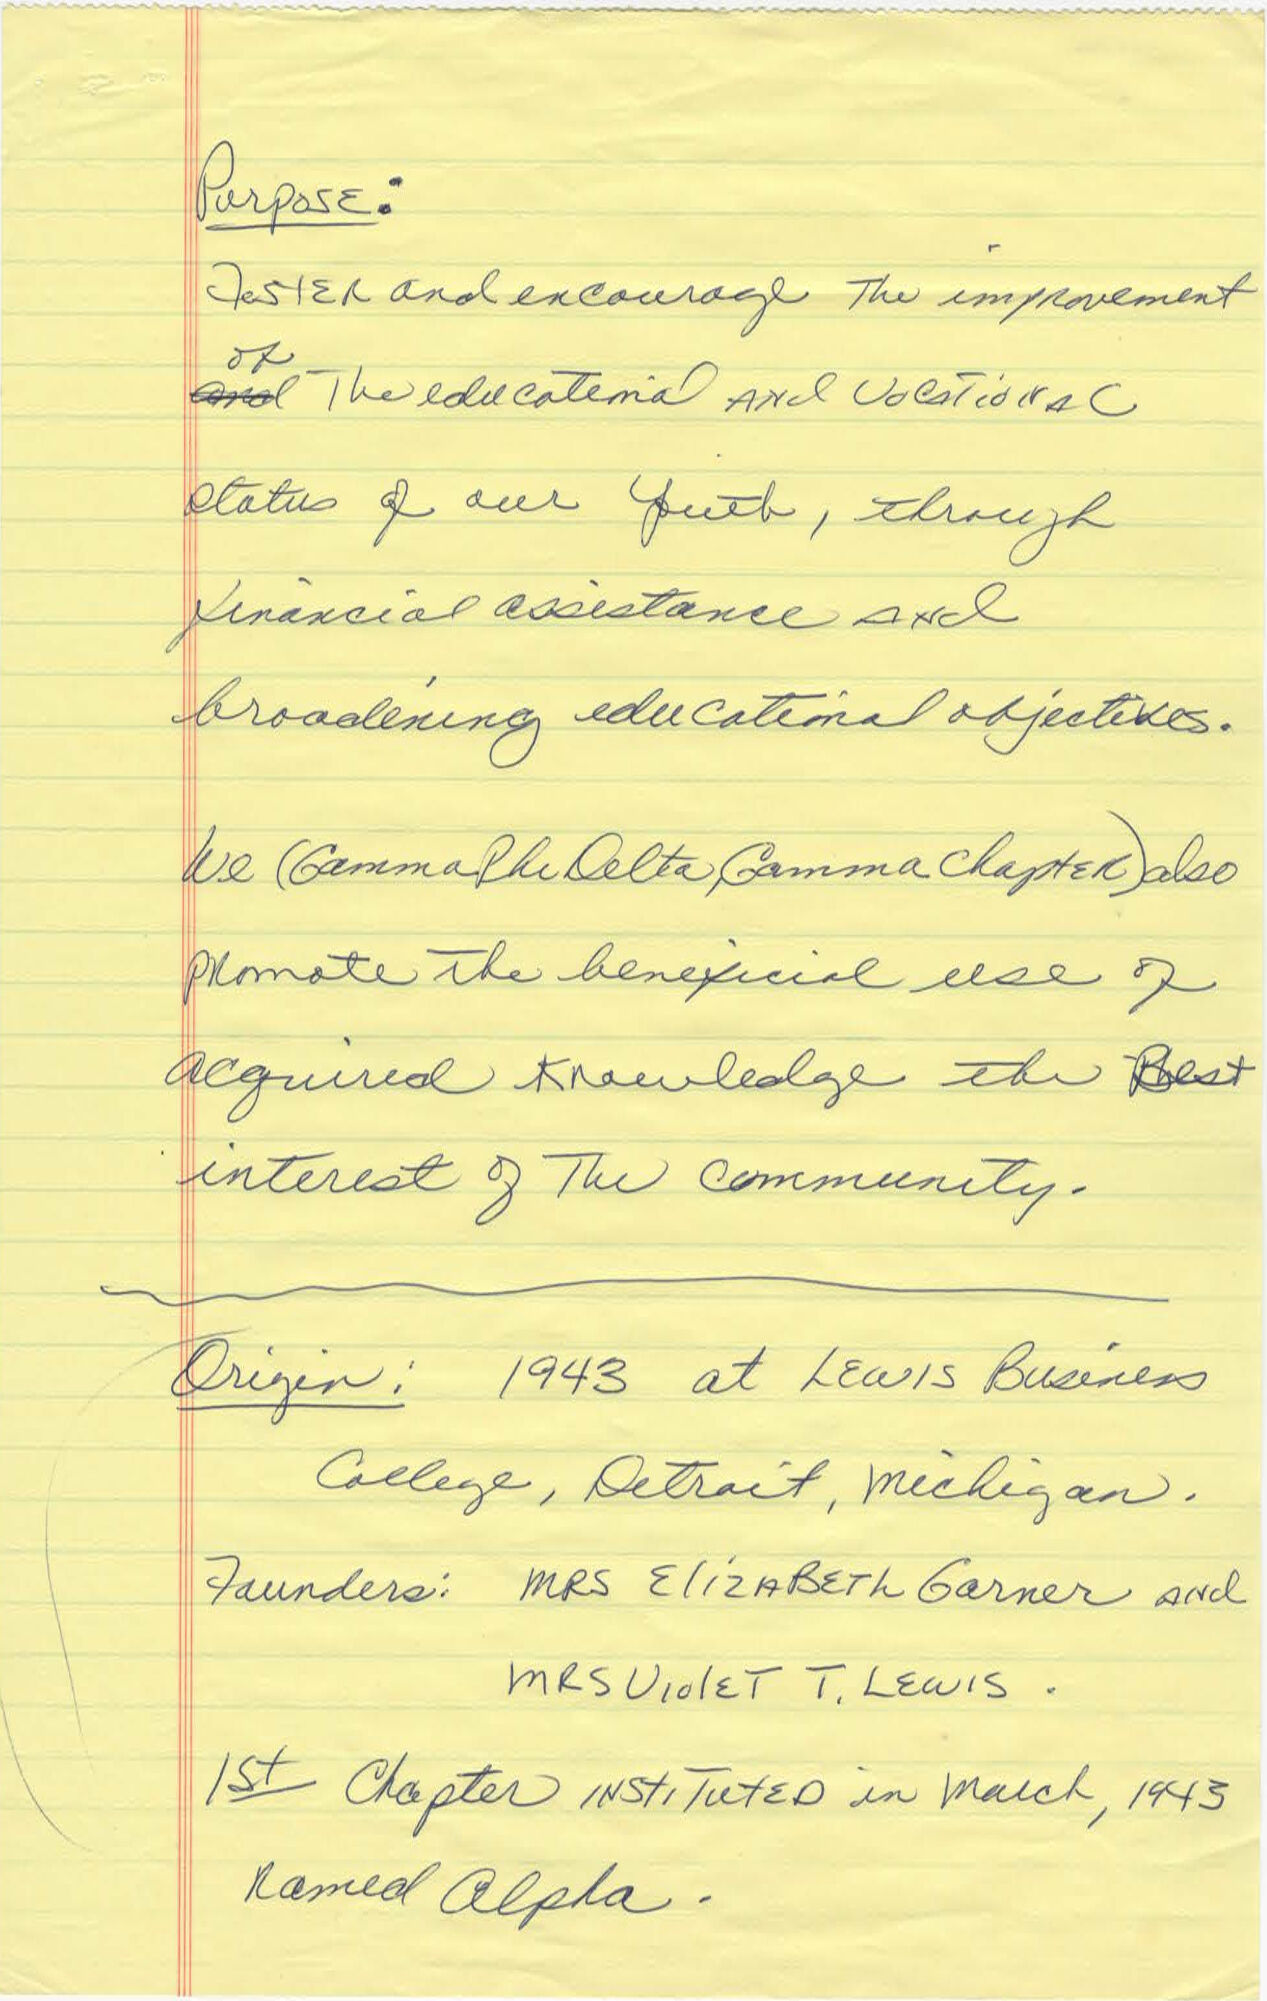 Purpose:
Foster and encourage The improvement
of
and The educational and Vocational
status of our Youth, through
financial assistance and
broadening educational objectives.
We (Gamma Phi Delta, Gamma Chapter) also
promote the beneficial use of
acquired knowledge the Best
interest of The community.
Origin: 1943 at Lewis Business
College, Detroit, Michigan.
Founders: MRS Elizabeth Garner and
MRS Violet T. Lewis.
1st Chapter instituted in March, 1943
Named Alpha.